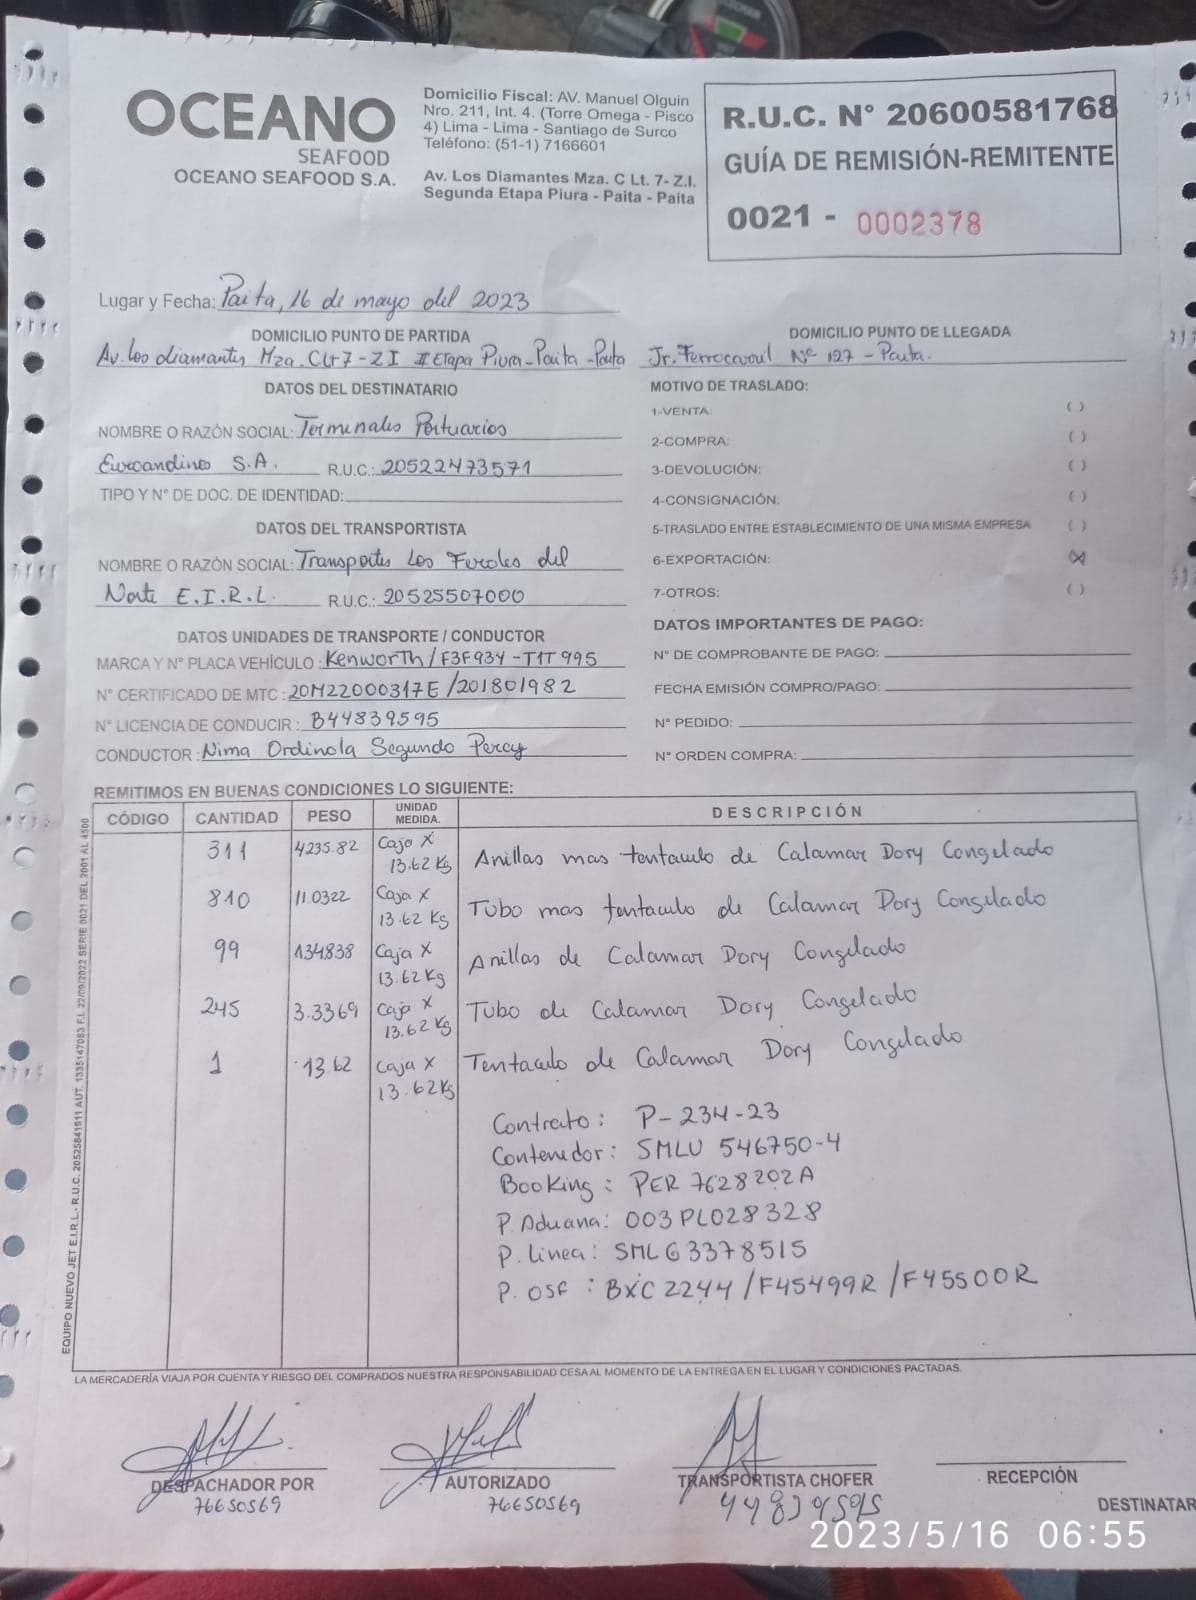 OCEANO
SEAFOOD
OCEANO SEAFOOD S.A.
Domicilio Fiscal: AV. Manuel Olguin
Nro. 211, Int. 4. (Torre Omega - Pisco
4) Lima - Lima - Santiago de Surco
Teléfono: (51-1) 7166601
Av. Los Diamantes Mza. C Lt. 7- Z.I.
Segunda Etapa Piura - Paita - Paita
R.U.C. N° 20600581768
GUÍA DE REMISIÓN-REMITENTE
0021 - 0002378
Lugar y Fecha: Paita, 16 de mayo del 2023
DOMICILIO PUNTO DE PARTIDA
Av. Los diamantes Mza. CLt 7 - Z I II Etapa Piura - Paita - Paita
DOMICILIO PUNTO DE LLEGADA
Jr. Ferrocarril N° 127 - Paita.
DATOS DEL DESTINATARIO
NOMBRE O RAZÓN SOCIAL: Terminales Portuarios
Euroandinos S.A. R.U.C.: 20522473571
TIPO Y N° DE DOC. DE IDENTIDAD:
DATOS DEL TRANSPORTISTA
NOMBRE O RAZÓN SOCIAL: Transportes Los Feroles del
Norte E.I.R.L. R.U.C.: 20525507000
DATOS UNIDADES DE TRANSPORTE / CONDUCTOR
MARCA Y N° PLACA VEHÍCULO : Kenworth / F3F934 - T1T 995
N° CERTIFICADO DE MTC : 20M22000317E / 201801982
N° LICENCIA DE CONDUCIR : B44839595
CONDUCTOR : Nima Ordinola Segundo Percy
MOTIVO DE TRASLADO:
1-VENTA: ( )
2-COMPRA: ( )
3-DEVOLUCIÓN: ( )
4-CONSIGNACIÓN: ( )
5-TRASLADO ENTRE ESTABLECIMIENTO DE UNA MISMA EMPRESA ( )
6-EXPORTACIÓN: (X)
7-OTROS: ( )
DATOS IMPORTANTES DE PAGO:
N° DE COMPROBANTE DE PAGO:
FECHA EMISIÓN COMPRO/PAGO:
N° PEDIDO:
N° ORDEN COMPRA:
REMITIMOS EN BUENAS CONDICIONES LO SIGUIENTE:
CÓDIGO CANTIDAD PESO UNIDAD MEDIDA. DESCRIPCIÓN
311 4235.82 Caja x 13.62 Kg Anillas mas tentaculo de Calamar Dory Congelado
810 11.0322 Caja x 13.62 Kg Tubo mas tentaculo de Calamar Dory Congelado
99 134838 Caja x 13.62 Kg Anillas de Calamar Dory Congelado
245 3.3369 Caja x 13.62 Kg Tubo de Calamar Dory Congelado
1 13.62 Caja x 13.62 Kg Tentaculo de Calamar Dory Congelado
Contrato : P-234-23
Contenedor : SMLU 546750-4
Booking : PER 7628202A
P. Aduana: 003PL028328
P. Linea : SMLG3378515
P. OSF : BXC 2244 / F45499R / F45500R
EQUIPO NUEVO JET E.I.R.L.- R.U.C. 20525841911 AUT. 1335147083 F.I. 22/09/2022 SERIE 0021 DEL 2001 AL 4500
LA MERCADERÍA VIAJA POR CUENTA Y RIESGO DEL COMPRADOS NUESTRA RESPONSABILIDAD CESA AL MOMENTO DE LA ENTREGA EN EL LUGAR Y CONDICIONES PACTADAS.
DESPACHADOR POR
76650569
AUTORIZADO
76650569
TRANSPORTISTA CHOFER
44839595
RECEPCIÓN
DESTINATAR
2023/5/16 06:55